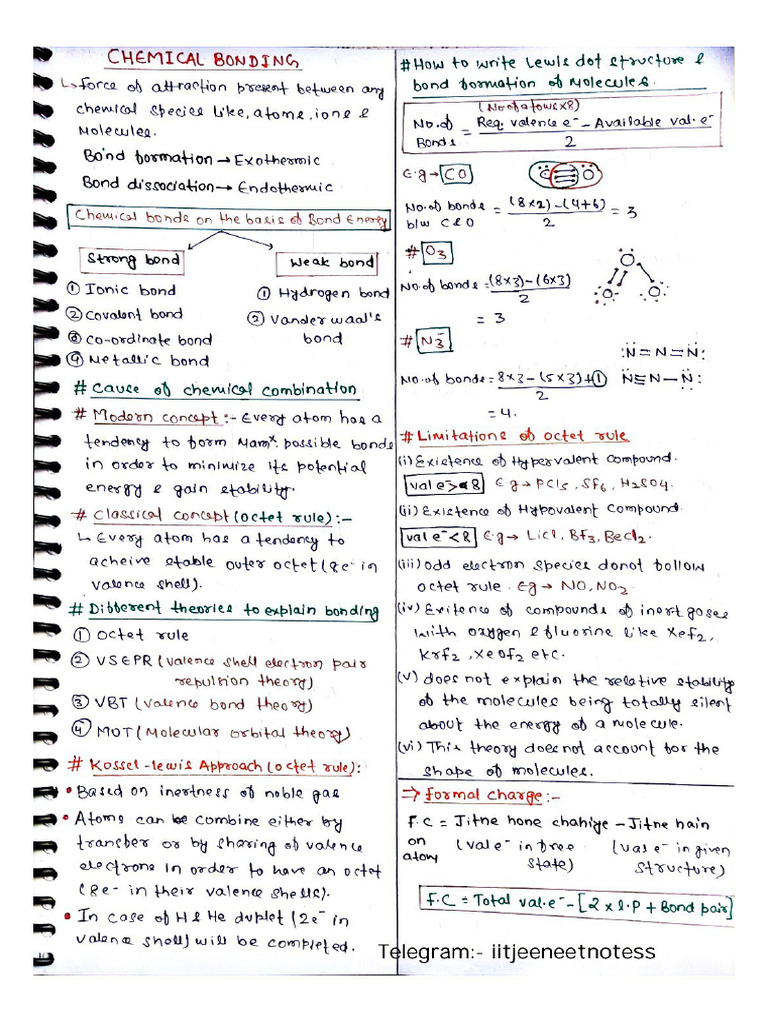 CHEMICAL BONDING
↳ Force of attraction present between any
chemical species like, atoms, ions &
Molecules.
Bond formation → Exothermic
Bond dissociation → Endothermic
Chemical bonds on the basis of Bond Energy
Strong bond
Weak bond
① Ionic bond
② Covalent bond
③ co-ordinate bond
④ Metallic bond
① Hydrogen bond
② Vander waal's
bond
# Cause of chemical combination
# Modern concept :- Every atom has a
tendency to form Mamˣ. possible bonds
in order to minimize its potential
energy & gain stability.
# Classical concept (octet rule) :-
↳ Every atom has a tendency to
acheive stable outer octet (8e⁻ in
valence shell).
# Different theories to explain bonding
① Octet rule
② VSEPR (valence shell electron pair
repulsion theory)
③ VBT (valence bond theory)
④ MOT (Molecular orbital theory)
# Kossel-lewis Approach (octet rule):
• Based on inertness of noble gas
• Atoms can be combine either by
transfer or by sharing of valence
electrons in order to have an octet
(8e⁻ in their valence shells).
• In case of H & He duplet (2e⁻ in
valence shell) will be completed.
# How to write Lewis dot structure &
bond formation of Molecules.
(No of atoms x 8)
No. of Bonds = Req. valence e⁻ - Available val. e⁻
2
E.g → CO
C O
No. of bonds b/w C & O = (8x2) - (4+6) / 2 = 3
# O3
O
O O
No. of bonds = (8x3) - (6x3) / 2
= 3
# N3⁻
:N = N = N:
No. of bonds = 8x3 - (5x3) + ① / 2
N ≡ N - N:
= 4.
# Limitations of octet rule
(i) Existence of Hypervalent compound.
val e > 8 E.g → PCl5, SF6, H2SO4.
(ii) Existence of Hypovalent Compound.
val e⁻ < 8 E.g → LiCl, BF3, BeCl2.
(iii) odd electron species donot follow
octet rule. Eg → NO, NO2
(iv) Exitence of compounds of inert gases
with oxygen & fluorine like XeF2,
KrF2, XeOF2 etc.
(v) does not explain the relative stability
of the molecules being totally silent
about the energy of a molecule.
(vi) This theory does not account for the
shape of molecules.
⇒ Formal charge :-
F.C = Jitne hone chahiye - Jitne hain
on atom (val e⁻ in free (val e⁻ in given
state) structure)
F.C = Total val. e⁻ - [2 x l.P + Bond pair]
Telegram:- iitjeeneetnotess